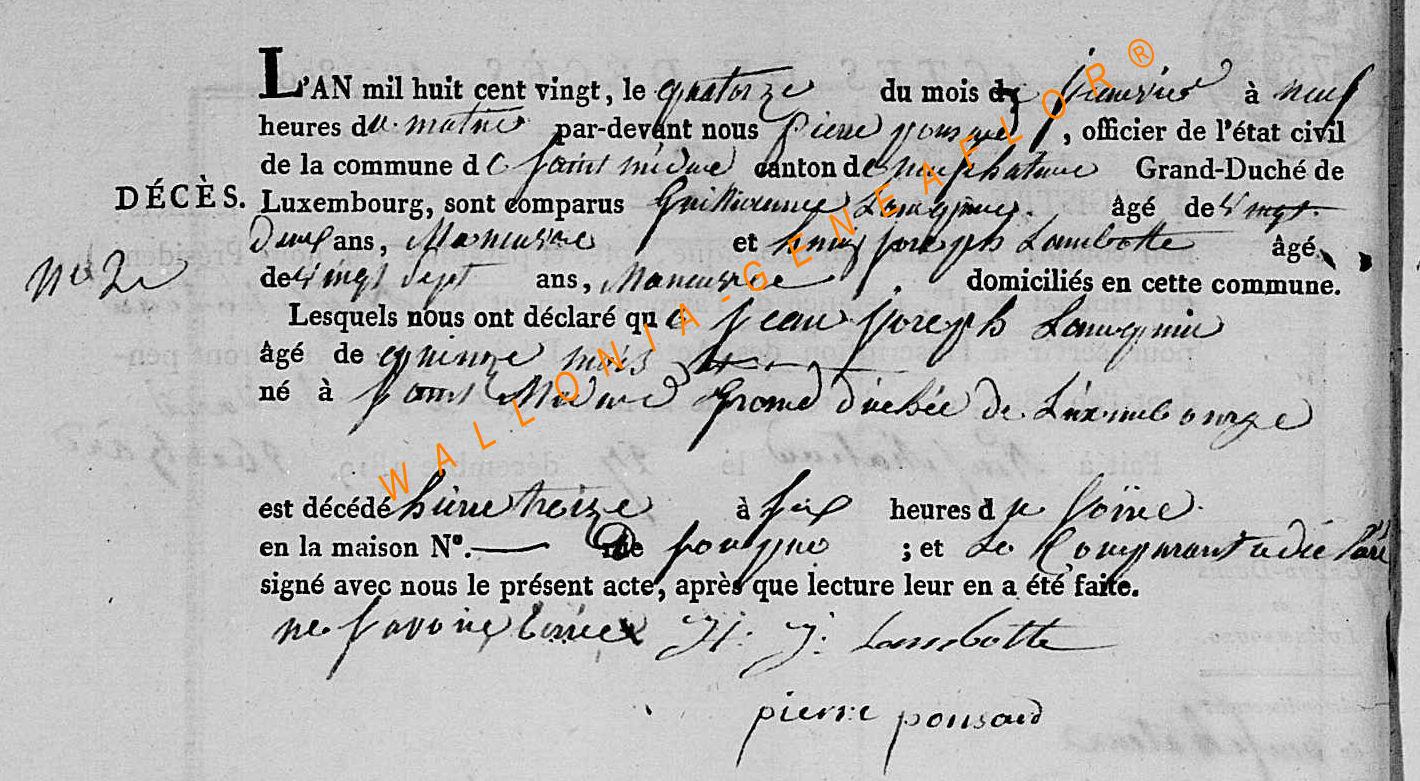 L'AN mil huit cent vingt, le quatorze du mois de janvier à neuf
heures du matin par-devant nous pierre ponsard, officier de l'état civil
de la commune de saint médard canton de neufchateau Grand-Duché de
DÉCÈS. Luxembourg, sont comparus âgé de vingt
deux ans, Maneuvre et henry joseph Lambotte âgé
n° 2 de vingt sept ans, Maneuvre domiciliés en cette commune.
Lesquels nous ont déclaré que jean joseph
âgé de quinze mois
né à saint Médard Grand duchée de Luxembourge
est décédé hiere treize à six heures du soire
en la maison N°. — rue ; et Le Comparant a déclaré
signé avec nous le présent acte, après que lecture leur en a été faite.
ne savoire H. J. Lambotte
pierre ponsard
WALLONIA-GENEAFLOR®